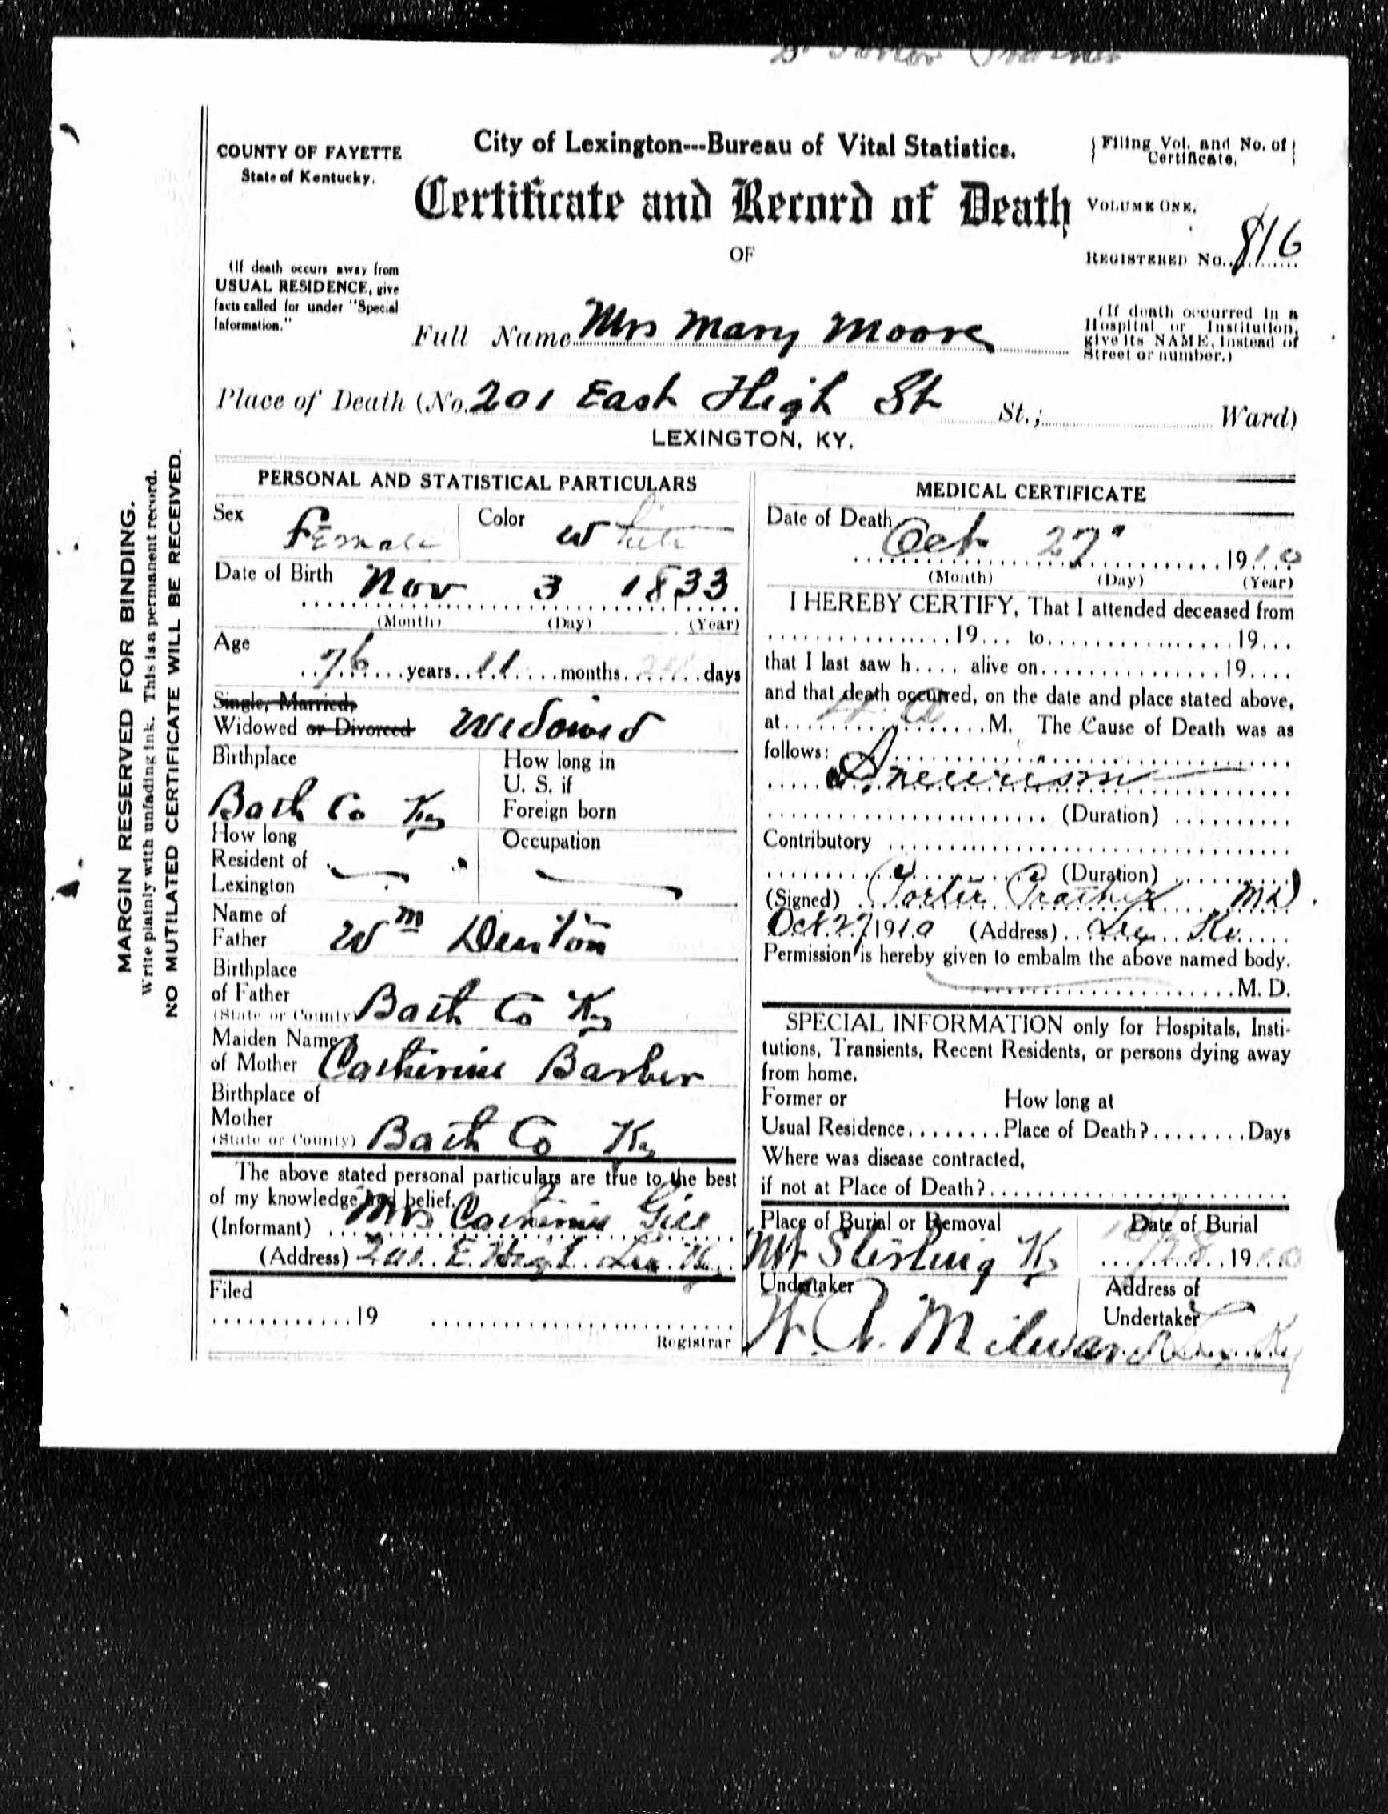 Dr Porter Prather
COUNTY OF FAYETTE
State of Kentucky.
City of Lexington---Bureau of Vital Statistics.
Filing Vol. and No. of
Certificate.
Certificate and Record of Death
VOLUME ONE.
OF
REGISTERED No. 816
(If death occurs away from
USUAL RESIDENCE, give
facts called for under "Special
Information."
Full Name Mrs Mary Moore
(If death occurred in a
Hospital or Institution,
give its NAME, instead of
Street or number.)
Place of Death (No. 201 East High St St.; Ward)
LEXINGTON, KY.
MARGIN RESERVED FOR BINDING.
Write plainly with unfading ink. This is a permanent record.
NO MUTILATED CERTIFICATE WILL BE RECEIVED.
PERSONAL AND STATISTICAL PARTICULARS
Sex Female
Color White
Date of Birth Nov 3 1833
(Month) (Day) (Year)
Age
76 years 11 months 24 days
Single, Married,
Widowed or Divorced Widowed
Birthplace
Bath Co Ky
How long in
U. S. if
Foreign born
How long
Resident of
Lexington
Occupation
Name of
Father Wm Denton
Birthplace
of Father
(State or County) Bath Co Ky
Maiden Name
of Mother Catherine Barber
Birthplace of
Mother
(State or County) Bath Co Ky
The above stated personal particulars are true to the best
of my knowledge and belief.
(Informant) Mrs Catherine Gill
(Address) 201 E. High Lex Ky
Filed
19
Registrar
MEDICAL CERTIFICATE
Date of Death Oct 27" 1910
(Month) (Day) (Year)
I HEREBY CERTIFY, That I attended deceased from
19... to 19...
that I last saw h.... alive on 19....
and that death occurred, on the date and place stated above,
at M. The Cause of Death was as
follows:
Aneurism
(Duration)
Contributory
(Duration)
(Signed) Porter Prather MD.
Oct. 27 1910 (Address) Lex Ky.
Permission is hereby given to embalm the above named body.
M. D.
SPECIAL INFORMATION only for Hospitals, Insti-
tutions, Transients, Recent Residents, or persons dying away
from home.
Former or How long at
Usual Residence........Place of Death?........Days
Where was disease contracted,
if not at Place of Death?
Place of Burial or Removal
Mt Sterling Ky
Date of Burial
28 1910
Undertaker
W. R. Milward
Address of
Undertaker
Lex Ky